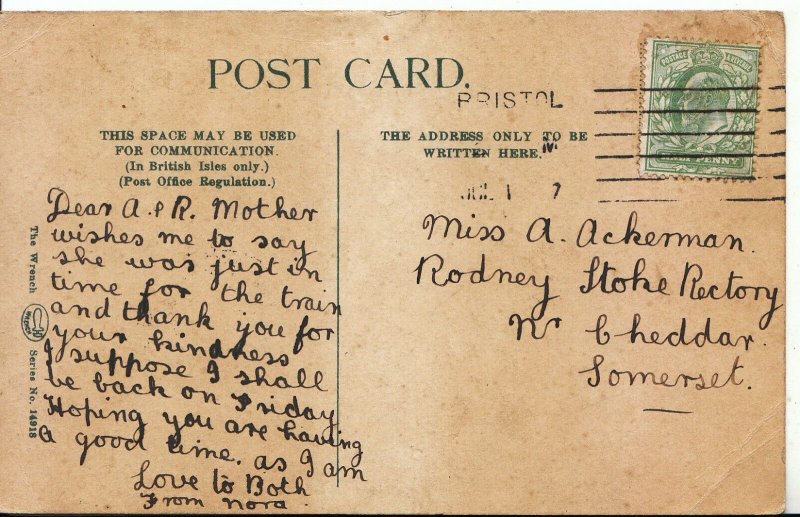 POST CARD.
BRISTOL
POSTAGE
THIS SPACE MAY BE USED
FOR COMMUNICATION.
(In British Isles only.)
(Post Office Regulation.)
THE ADDRESS ONLY TO BE
WRITTEN HERE.
JUL 1 7
Dear A & R. Mother
wishes me to say
she was just in
time for the train
and thank you for
your kindness
I suppose I shall
be back on Friday
Hoping you are having
a good time. as I am
Love to Both
From Nora.
Miss A. Ackerman.
Rodney Stoke Rectory
Nr Cheddar.
Somerset.
The Wrench Series No. 14918